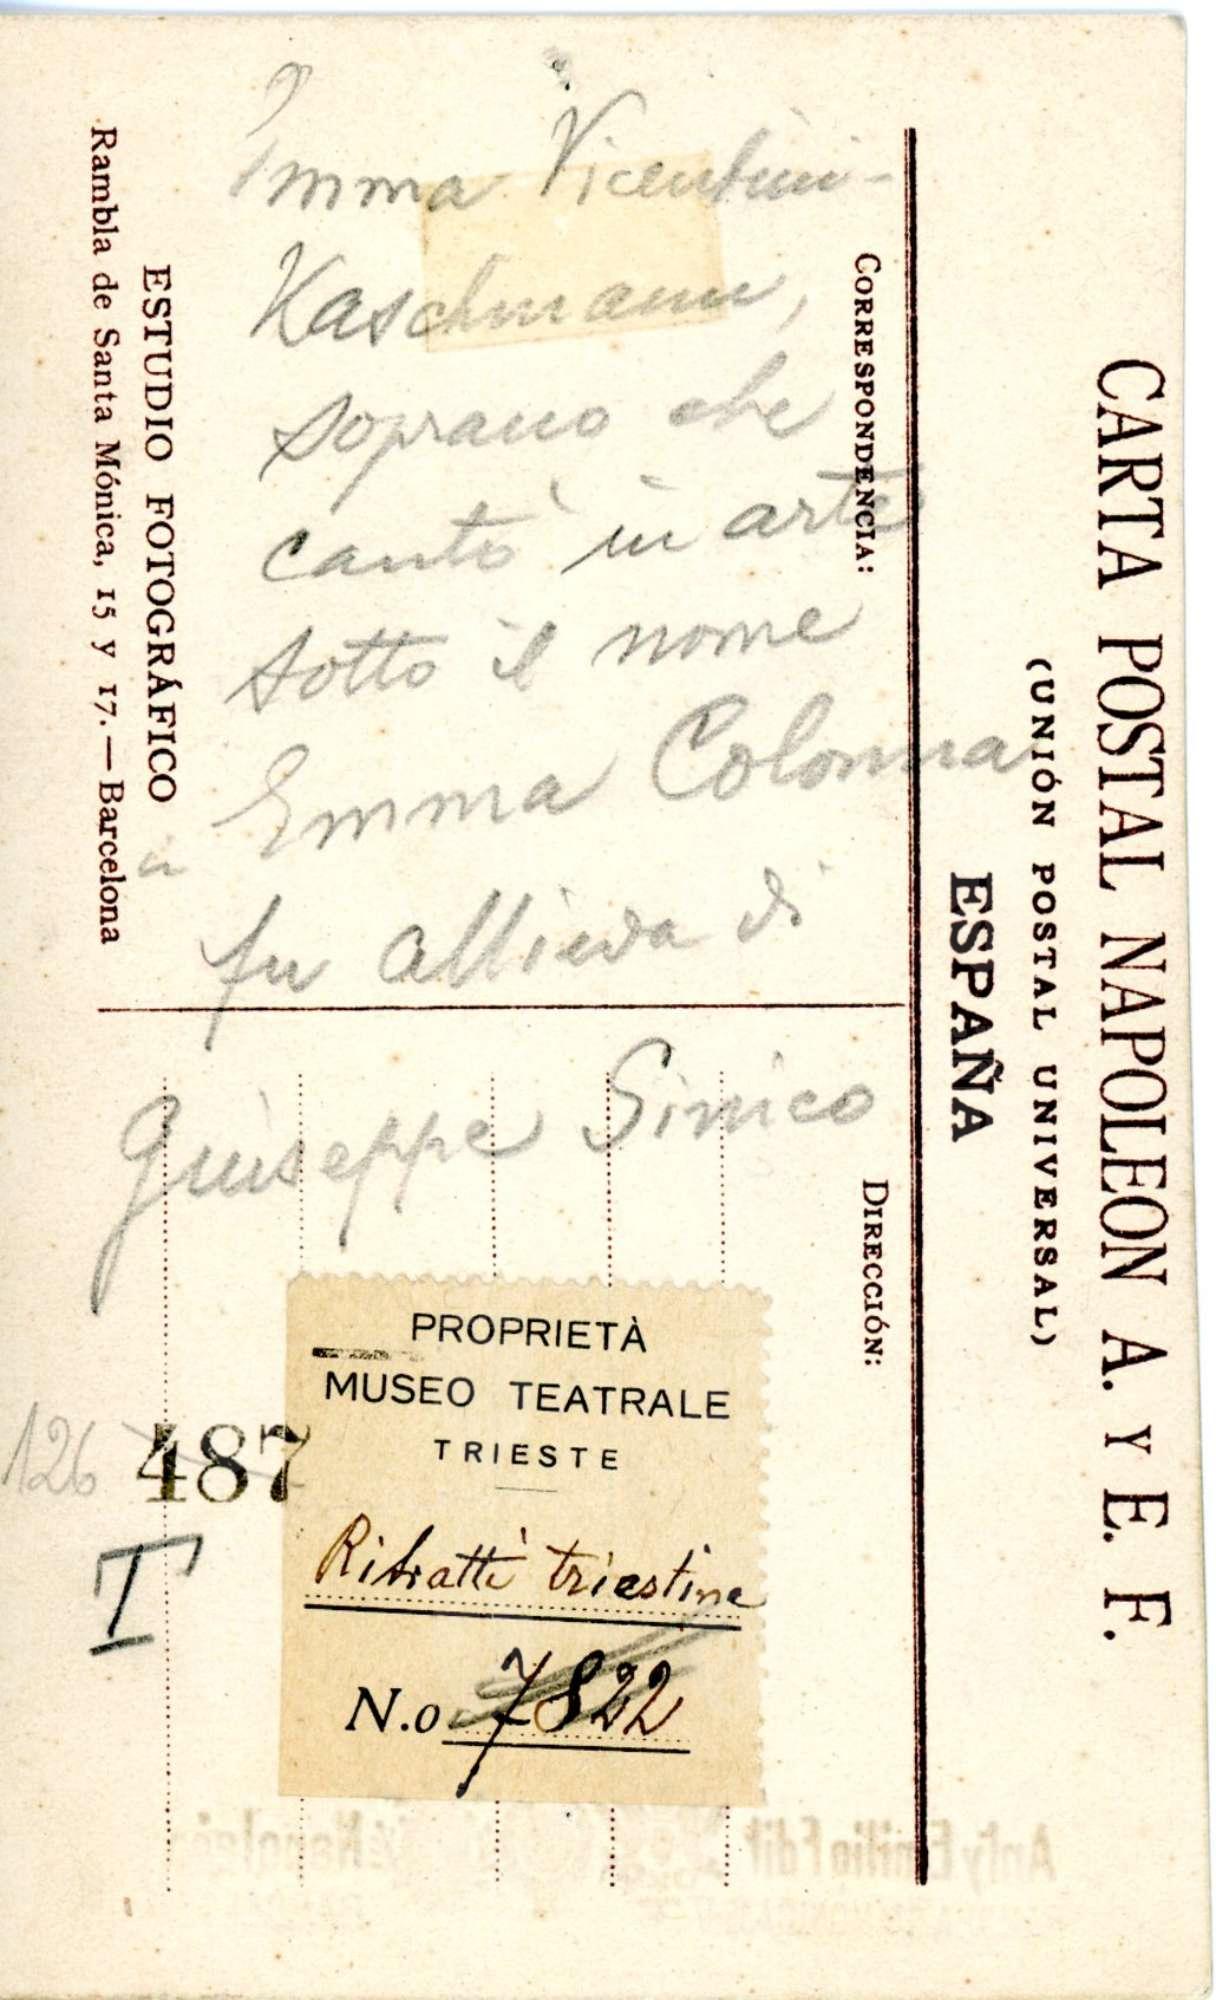 CARTA POSTAL NAPOLEON A. Y E. F.
(UNIÓN POSTAL UNIVERSAL)
ESPAÑA
CORRESPONDENCIA:
DIRECCIÓN:
ESTUDIO FOTOGRÁFICO
Rambla de Santa Mónica, 15 y 17.—Barcelona
Imma Vicentini-
Kaschmann,
soprano che
cantò in arte
sotto il nome
Emma Colonna
fu allieva di
Giuseppe Sinico
PROPRIETÀ
MUSEO TEATRALE
TRIESTE
Ritratti triestine
N.o 7822
126 487
T